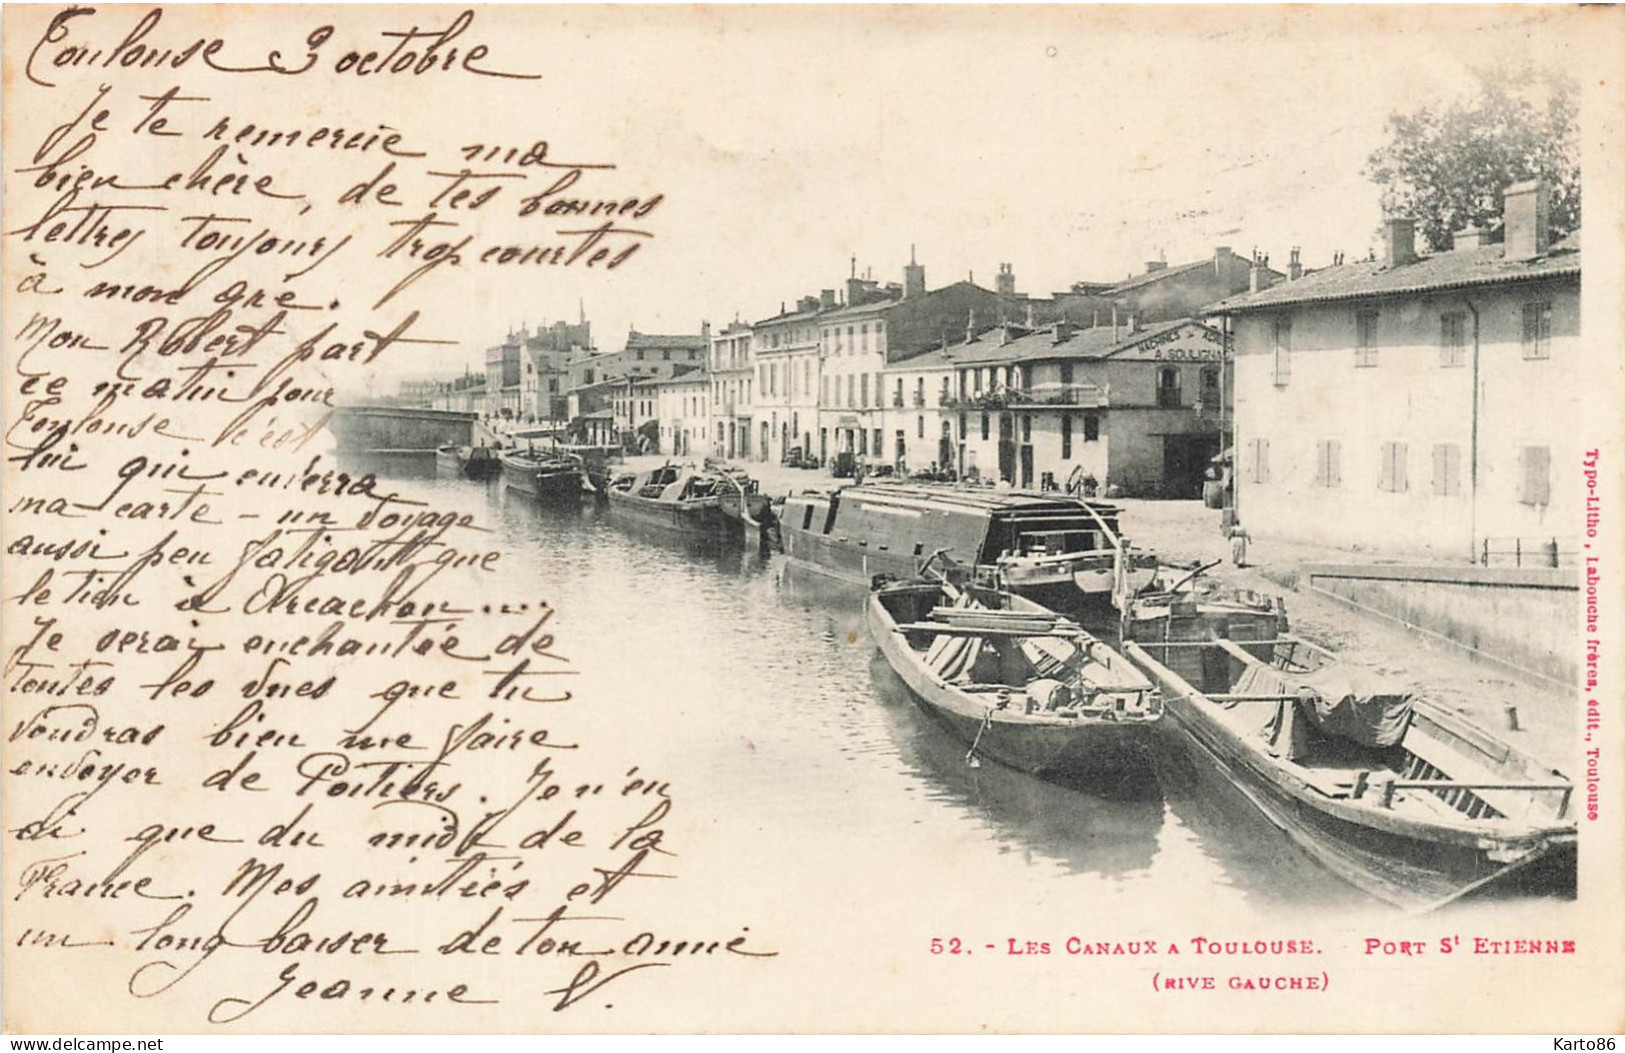 Toulouse 3 octobre
Je te remercie ma
bien chère, de tes bonnes
lettres toujours trop courtes
à mon gré.
Mon Robert part
ce matin pour
Toulouse c'est
lui qui enverra
ma carte - un voyage
aussi peu fatigant que
le tien à Arcachon....
Je serai enchantée de
toutes les vues que tu
voudras bien me faire
envoyer de Poitiers. Je n'en
ai que du midi de la
France. Mes amitiés et
un long baiser de ton amie
Jeanne V.
A. SOULIGNAC
52. - LES CANAUX A TOULOUSE. PORT St ETIENNE
(RIVE GAUCHE)
Typo-Litho, Labouche frères, édit., Toulouse
delcampe.net
Karto86